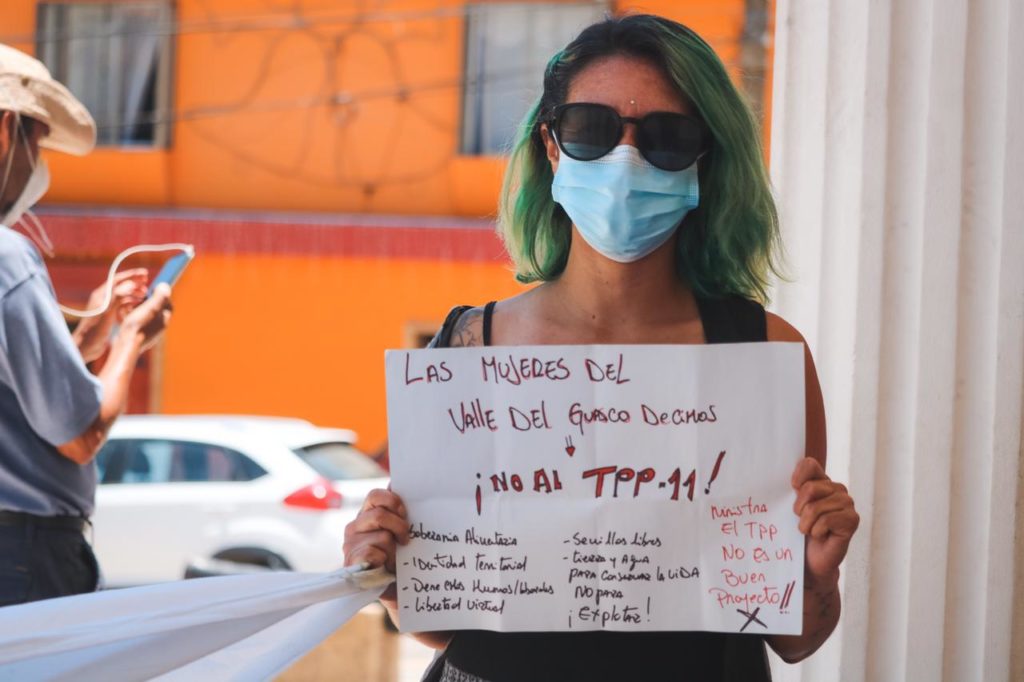 LAS MUJERES DEL
VALLE DEL GUASCO DECIMOS
¡NO AL TPP-11!
Soberania Alimentaria
- IDentidad Territorial
- Derechos Humanos/laborales
- Libertad Virtual
- Semillas libres
- tierra y Agua
PARA Conservar la VIDA
NO PARA
¡EXplotar!
ministra
EL TPP
NO ES UN
BUEN
Proyecto!!